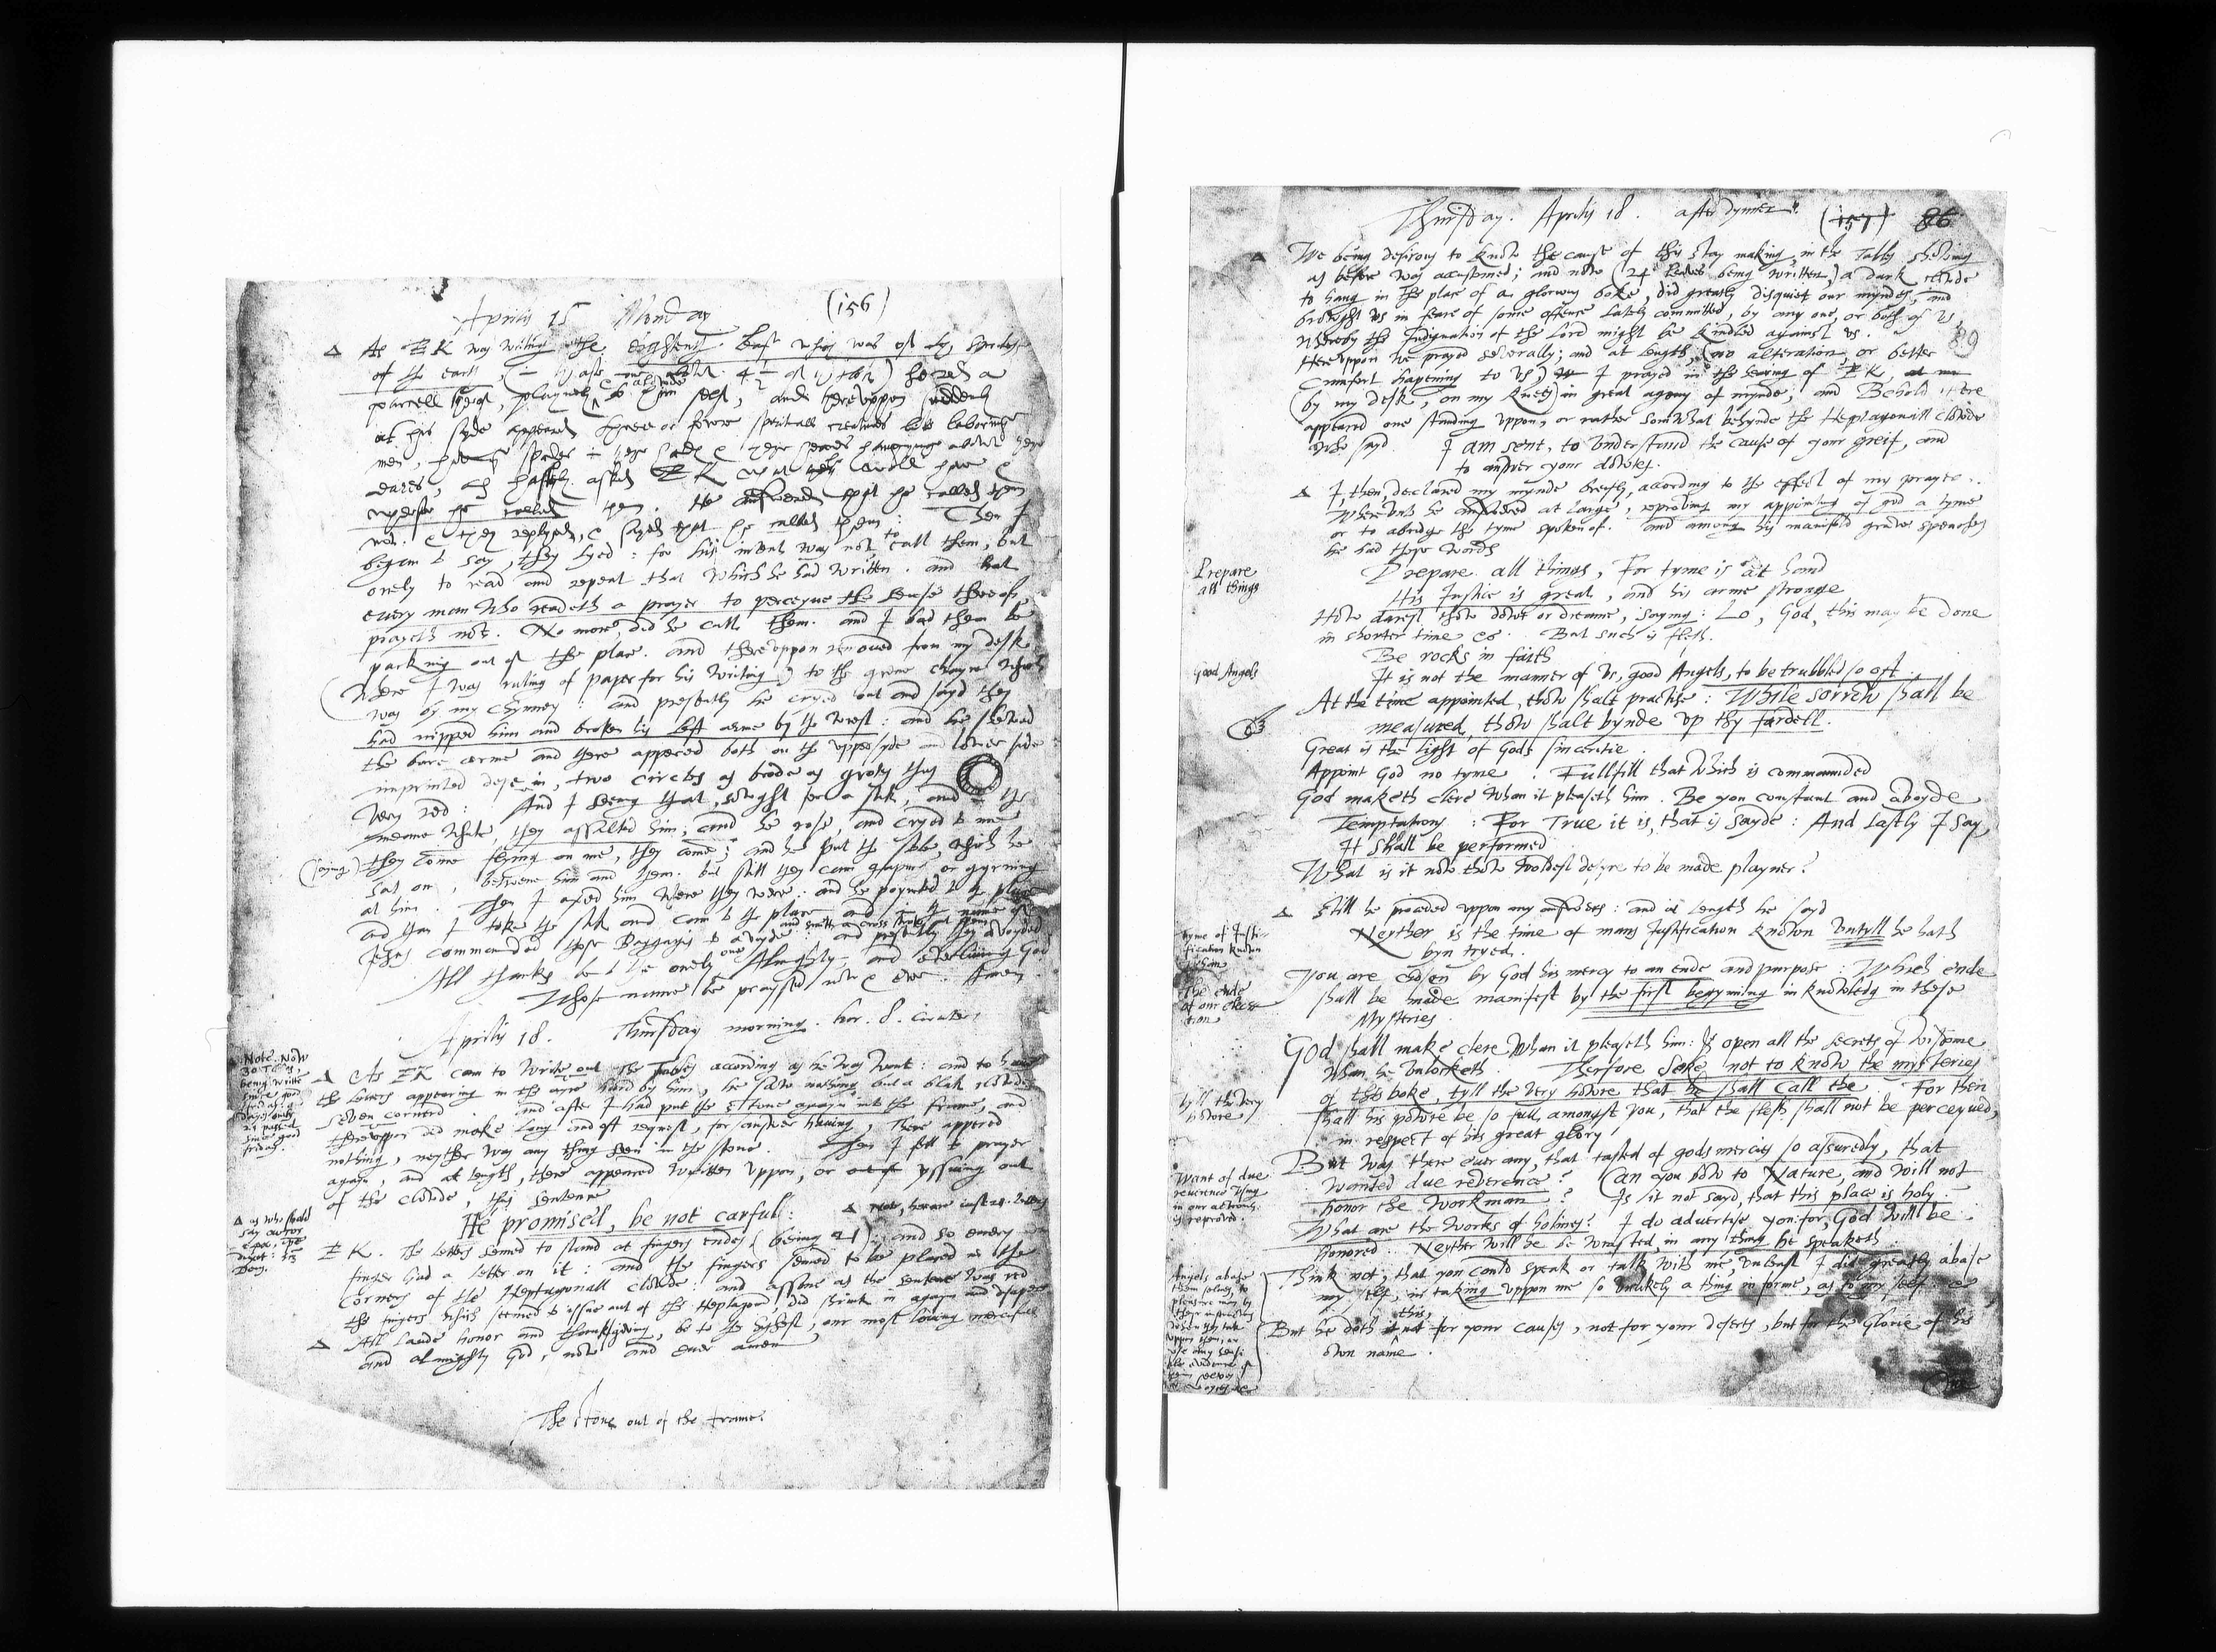 (156)
Aprilis 15 Monday
Δ As EK was writing the eightenth leaf which was of the spirites
of the earth,
parcell therof, playnely & alowde to him self, and hereuppon suddenly
at his syde appeared three or fowre spirituall creatures like laboring
men, having spades in theyr hands & theyr heares hanginge about theyr
eares, and hastyly asked EK what he wold have, &
wherfore he called them. He answered that he called them
not. & they replyed, & sayed that he called them: Then I
began to say, they lyed: for his intent was not, to call them, but
onely to read and repeat that which he had written. and that
every man who readeth a prayer to perceyve the sense therof,
prayeth not. No more, did he call them. and I bad them be
packing out of the place. and thereuppon removed from my desk
(where I was ruling of paper for his writing) to the grene chayre which
was by my chymney: and presently he cryed out and sayd they
had nipped him and broken his left arme by the wrest: and he shewed
the bare arme and there appeared both on the upper syde and lower side
imprinted depe in, two circles as brode as grotes thus
very red: And I seeing that, sowght for a stik, and in the
meane while, they assalted him, and he rose, and cryed to me
(saying) they come flying on me, they come; and he put the stole, which he
sat on, betwene him and them. but still they cam gaping or gyrning
at him. Then I axed him where they were: and he poynted to the place
and than I toke the stik and cam to the place and in the name of
Jesus commanded those Baggagis to avoyde and smitt a cross stroke at them: and presently they avoyded
All thanks be to the onely one Almighty, and everliving God
Whose name be praysed now & ever. Amen.
Aprilis 18. Thursday morning. hor. 8. circiter
Note. Now
30 Tables,
being writt
since good
friday.
Δ As EK cam to write out the Tables according as he was wont: and to have
the letters appearing in the ayre hard by him, he saw nothing but a blak clowde
seven cornerd. and after I had put the stone agayn into the frame, and
thereuppon did make long and oft request, for answer having, There appered
nothing, neyther was any thing seen in the stone. Then I fell to prayer
agayn, and at length, there appeared written uppon, or yssuing out
of the clowde this sentence
He promised, be not carfull:
Δ as who shold
say
E K. The letters semed to stand at fingers endes (being 21) and so every
finger had a letter on it: and the fingers semed to be placed at the
corners of the Heptagonall clowde: and assone as the sentence was red
the fingers which seemed to issue out of the Heptagon, did shrink in agayn and disapere
Δ All laude honor and thanksgiving, be to the highest, our most loving mercifull
and almighty God, now and ever amen
The stone out of the frame.
Thursday. Aprilis 18. after dynner. (157) 86
Δ We being desirous to know the cause of this stay making, in the Tables shewing
as before was accustomed; and now (24 leaves being written,) a dark clowde
to hang in the place of a glorious boke, did greatly disquiet our myndes, and
browght us in feare of some offense lately committed, by any one, or both of us,
whereby the Indignation of the Lord might be kindled against us. 89
Hereuppon we prayed severally; and at length, (no alteration, or better
cumfort hapening to us) I prayed in the hearing of EK,
(by my desk, on my knees) in great agony of mynde; and Behold there
appeared one standing uppon, or rather somwhat behynde the Heptagonall clowde
who sayd. I am sent, to understand the cause of your greif, and
to answer your dowtes.
Δ I, then, declared my mynde breifly, according to the effect of my prayer.
Whereunto he answered at large, reproving my appointing of god a tyme
or to abridge the tyme spoken of. and among his manifold grave speaches
he had these words
Prepare
all things
Prepare all things, For tyme is at hand
His Justice is great, and his arme stronge
How darest thow dowt or dreame, saying: Lo, God, this may be done
in shorter time &c. But such is flesh.
Be rocks in faith
Good Angels
It is not the manner of us, good Angels, to be trubbled so oft
At the time appointed, thow shalt practise: While sorrow shall be
measured, thow shalt bynde up thy fardell.
Great is the light of Gods sinceritie.
Appoint God no tyme. Fullfill that which is commaunded
God maketh clere whan it pleaseth him. Be you constant and avoyde
Temptations: For True it is, that is sayde: And lastly I say,
It shall be performed
What is it now thow woldest desyre to be made playner?
Δ Still he proceded uppon my answers: and at length he sayd
Tyme of Justi-
fication known
whan
Neyther is the time of mans Justification known untyll he hath
byn tryed.
The ende
of our elec-
tion
You are chosen by God his mercy to an ende and purpose: Which ende
shall be made manifest by the first begynning in knowledg in these
Mysteries.
God shall make clere whan it pleaseth him: & open all the secrets of wisdome
whan he unlocketh. Therfore Seke not to know the mysteries
tyll the very
howre
of this boke, tyll the very howre that he shall call the. For then
shall his powre be so full amongst you, that the flesh shall not be perceyved,
in respect of his great glory.
But was there ever any, that tasted of gods mercies so assuredly, that
Want of due
reverence using
in our actions,
is reproved.
wanted due reverence? Can you bow to Nature, and will not
honor the workman? Is it not sayd, that this place is holy.
What are the works of holines? I do advertise you: for, God will be
honored. Neyther will he be wrested, in any thing he speaketh.
Angels abase
them selves, to
pleasure man by
theyr instruction
Think not, that you could speak or talk with me, unleast I did greatly abase
my self, in taking uppon me so unlikely a thing in forme, as to my self
But he doth this not for your causes, not for your deserts, but for the Glorie of his
own name.